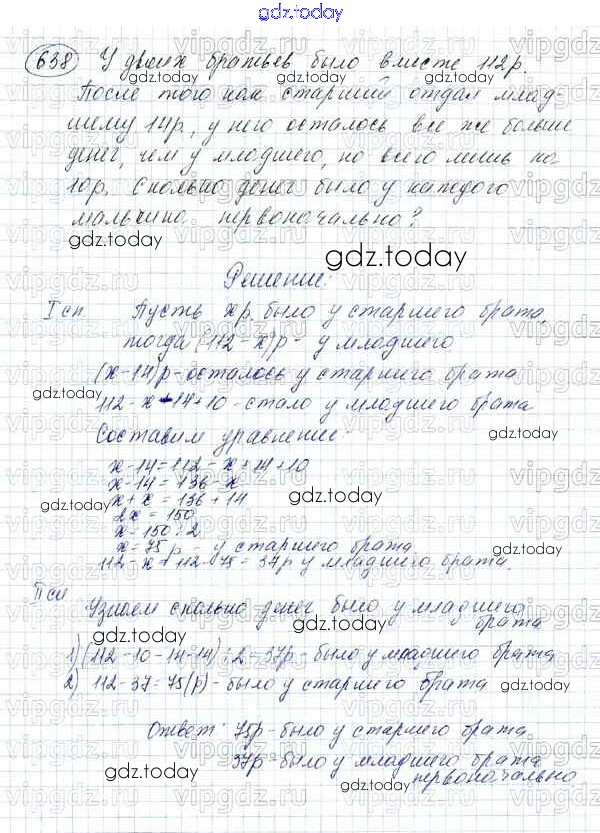 gdz.today
638 У двоих братьев было вместе 112р.
После того как старший отдал млад-
шему 14р, у него осталось все же больше
денег, чем у младшего, но всего лишь на
10р. Сколько денег было у каждого
мальчика первоначально?
Решение:
I сп. Пусть х р. было у старшего брата,
тогда (112-х)р - у младшего
(х-14)р - осталось у старшего брата
112-х+14+10 - стало у младшего брата
Составим уравнение:
х-14=112-х+14+10
х-14=136-х
х+х=136+14
2х=150
х=150:2
х=75р у старшего брата.
112-х=112-75=37р у младшего брата.
II сп Узнаем сколько денег было у младшего
брата
1) (112-10-14-14):2=37р - было у младшего брата
2) 112-37=75(р) - было у старшего брата
Ответ: 75р - было у старшего брата
37р - было у младшего брата
первоначально.